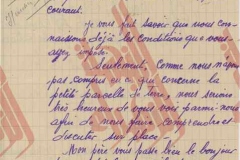 courant.
Je vous fait savoir que nous con-
naissons déjà les conditions que vous
avez imposé.
Seulement, comme nous n'avons
pas compris en ce qui concerne la
petite parcelle de terre, nous serions
très heureux de vous voir parmi nous
afin de nous faire comprendre et
discuter sur place -
Mon père vous passe bien le bonjour